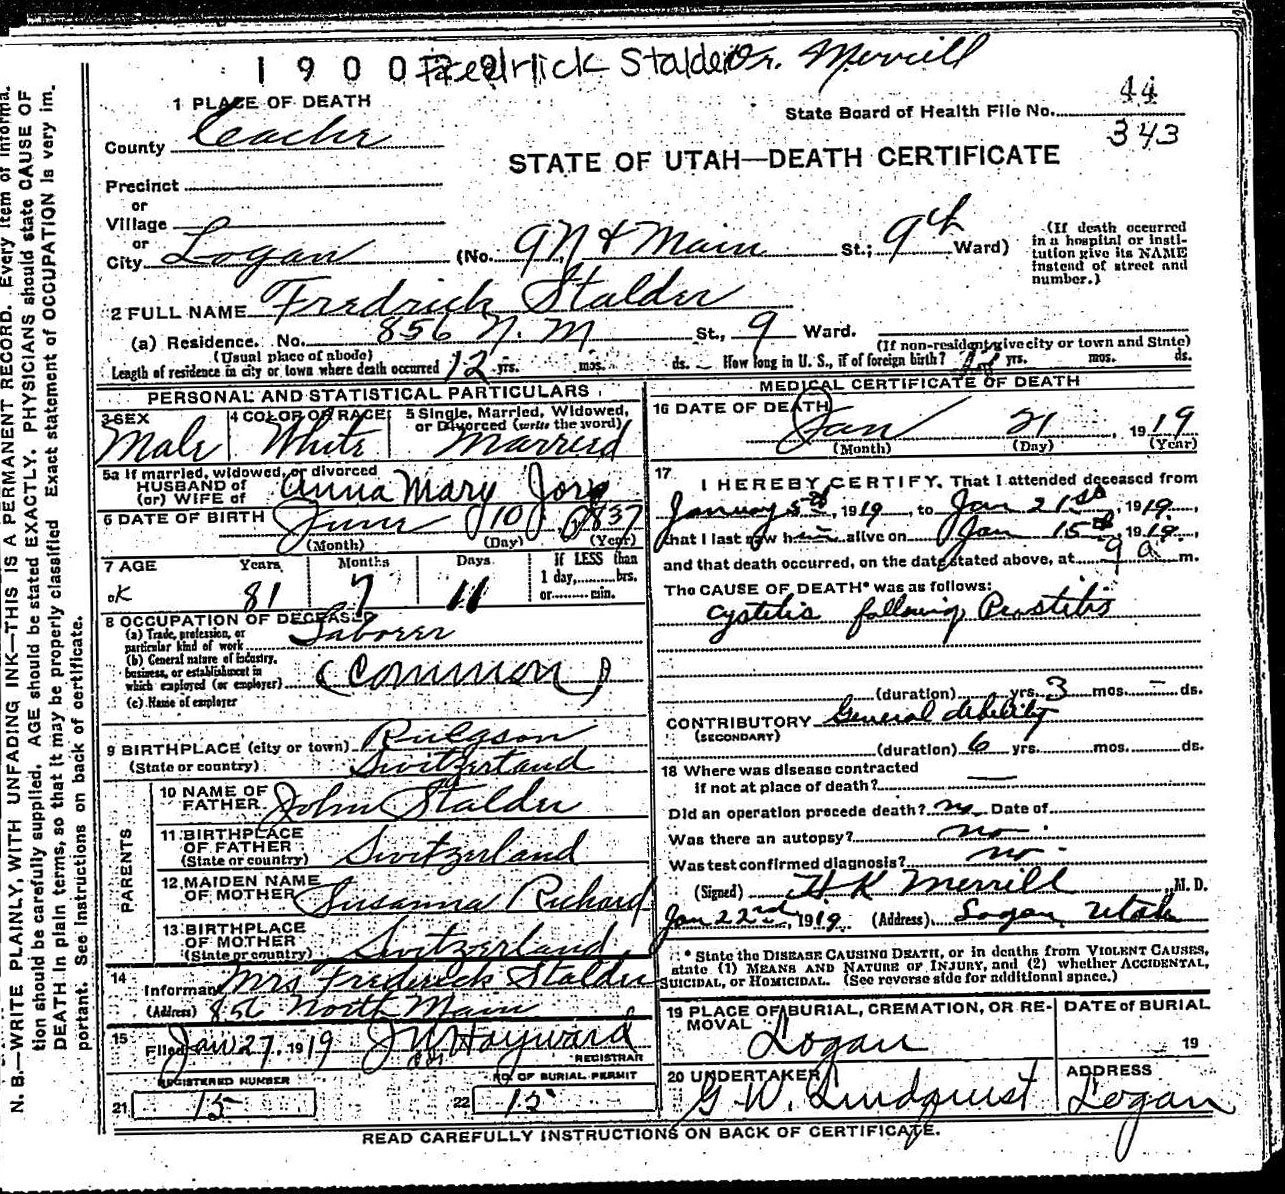 1900
Fredrick Stalder
Dr. Merrill
1 PLACE OF DEATH
State Board of Health File No. 44
343
County Cache
STATE OF UTAH—DEATH CERTIFICATE
Precinct
or
Village
or
City Logan (No. 9N & Main St.; 9th Ward)
(If death occurred in a hospital or institution give its NAME instead of street and number.)
2 FULL NAME Fredrick Stalder
(a) Residence. No. 856 N. M St., 9 Ward.
(Usual place of abode)
(If non-resident give city or town and State)
Length of residence in city or town where death occurred 12 yrs. mos. ds. How long in U. S., if of foreign birth? yrs. mos. ds.
PERSONAL AND STATISTICAL PARTICULARS
3 SEX Male
4 COLOR OR RACE White
5 Single, Married, Widowed, or Divorced (write the word) Married
5a If married, widowed, or divorced
HUSBAND of
(or) WIFE of Anna Mary Jorg
6 DATE OF BIRTH June 10 1837
(Month) (Day) (Year)
7 AGE Years Months Days If LESS than
1 day, hrs.
or min.
ok 81 7 11
8 OCCUPATION OF DECEASED
(a) Trade, profession, or
particular kind of work Laborer
(b) General nature of industry,
business, or establishment in
which employed (or employer) (common)
(c) Name of employer
9 BIRTHPLACE (city or town)
(State or country) Switzerland
PARENTS
10 NAME OF
FATHER John Stalder
11 BIRTHPLACE
OF FATHER
(State or country) Switzerland
12 MAIDEN NAME
OF MOTHER Susanna Richard
13 BIRTHPLACE
OF MOTHER
(State or country) Switzerland
14
Informant Mrs Frederick Stalder
(Address) 856 North Main
15
Filed Jan 27, 1919 Hayward
REGISTRAR
REGISTERED NUMBER
21 15
NO. OF BURIAL PERMIT
22 15
MEDICAL CERTIFICATE OF DEATH
16 DATE OF DEATH
Jan 21, 1919
(Month) (Day) (Year)
17
I HEREBY CERTIFY, That I attended deceased from
January 5th, 1919, to Jan 21st, 1919,
that I last saw him alive on Jan 15th, 1919,
and that death occurred, on the date stated above, at 9 a m.
The CAUSE OF DEATH* was as follows:
Cystitis following Prostitis
(duration) yrs. 3 mos. – ds.
CONTRIBUTORY General debility
(SECONDARY)
(duration) 6 yrs. mos. ds.
18 Where was disease contracted
if not at place of death? —
Did an operation precede death? no Date of
Was there an autopsy? no
Was test confirmed diagnosis? no
(Signed) H K Merrill, M. D.
Jan 22nd, 1919 (Address) Logan Utah
* State the DISEASE CAUSING DEATH, or in deaths from VIOLENT CAUSES,
state (1) MEANS AND NATURE OF INJURY, and (2) whether ACCIDENTAL,
SUICIDAL, or HOMICIDAL. (See reverse side for additional space.)
19 PLACE OF BURIAL, CREMATION, OR RE-
MOVAL Logan
DATE of BURIAL
19
20 UNDERTAKER
G W. Lindquist
ADDRESS
Logan
READ CAREFULLY INSTRUCTIONS ON BACK OF CERTIFICATE.
N. B.—WRITE PLAINLY, WITH UNFADING INK—THIS IS A PERMANENT RECORD. Every item of informa-
tion should be carefully supplied. AGE should be stated EXACTLY. PHYSICIANS should state CAUSE OF
DEATH in plain terms, so that it may be properly classified. Exact statement of OCCUPATION is very im-
portant. See instructions on back of certificate.